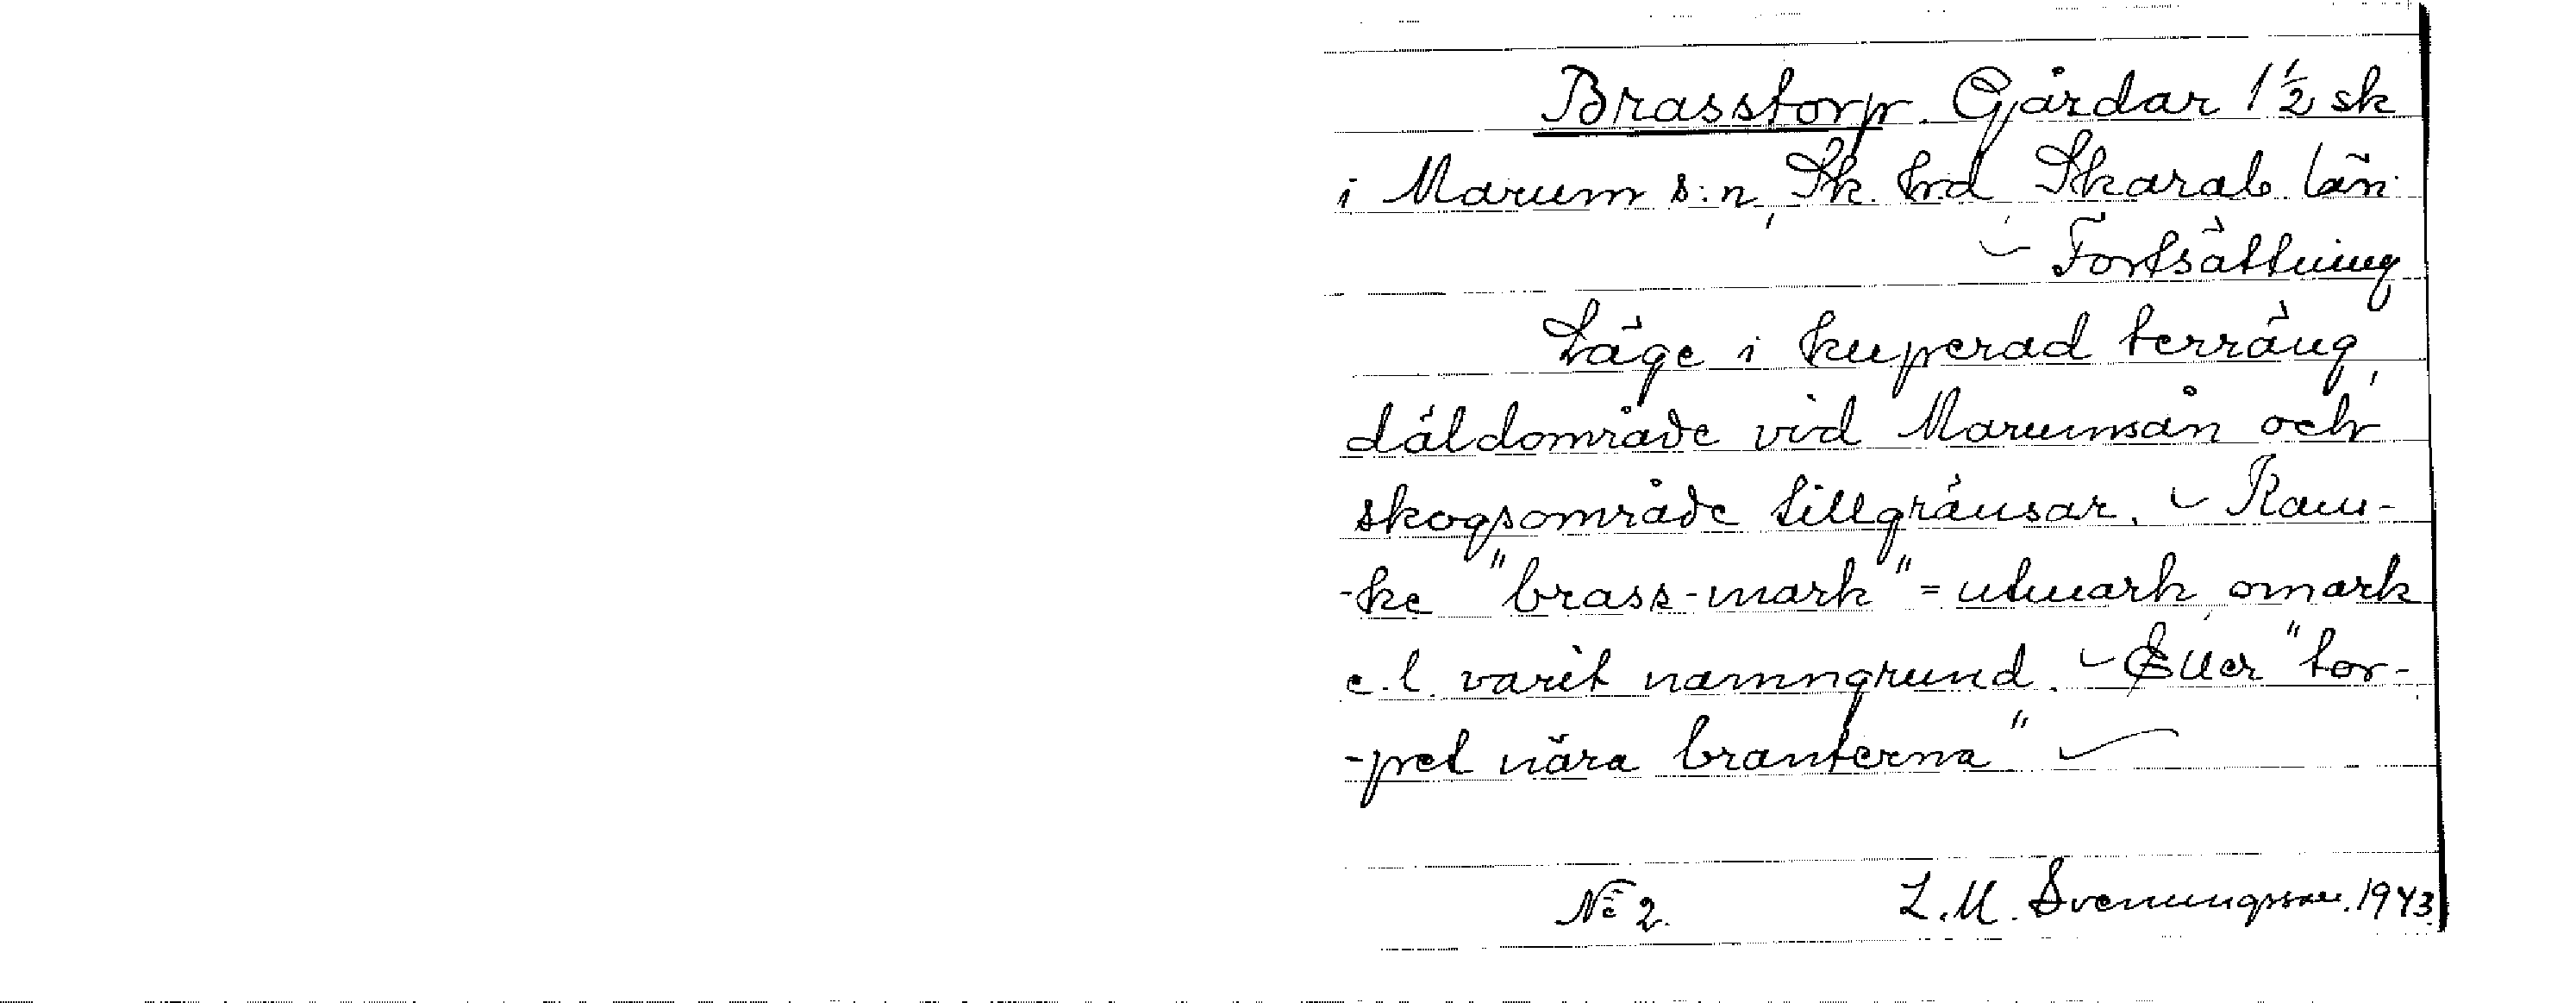 Brasstorp. Gårdar 1 1/2 sk
i Marum s:n, Sk. hd, Skarab. län.
– Fortsättning
Läge i kuperad terräng,
däldområde vid Marumsån och
skogsområde tillgränsar. – Kan-
-ke "brass-mark" = utmark, omark
e.l. varit namngrund. – Eller "tor-
-pet nära branterna" –
No 2. L.M. Svenungsson. 1943.